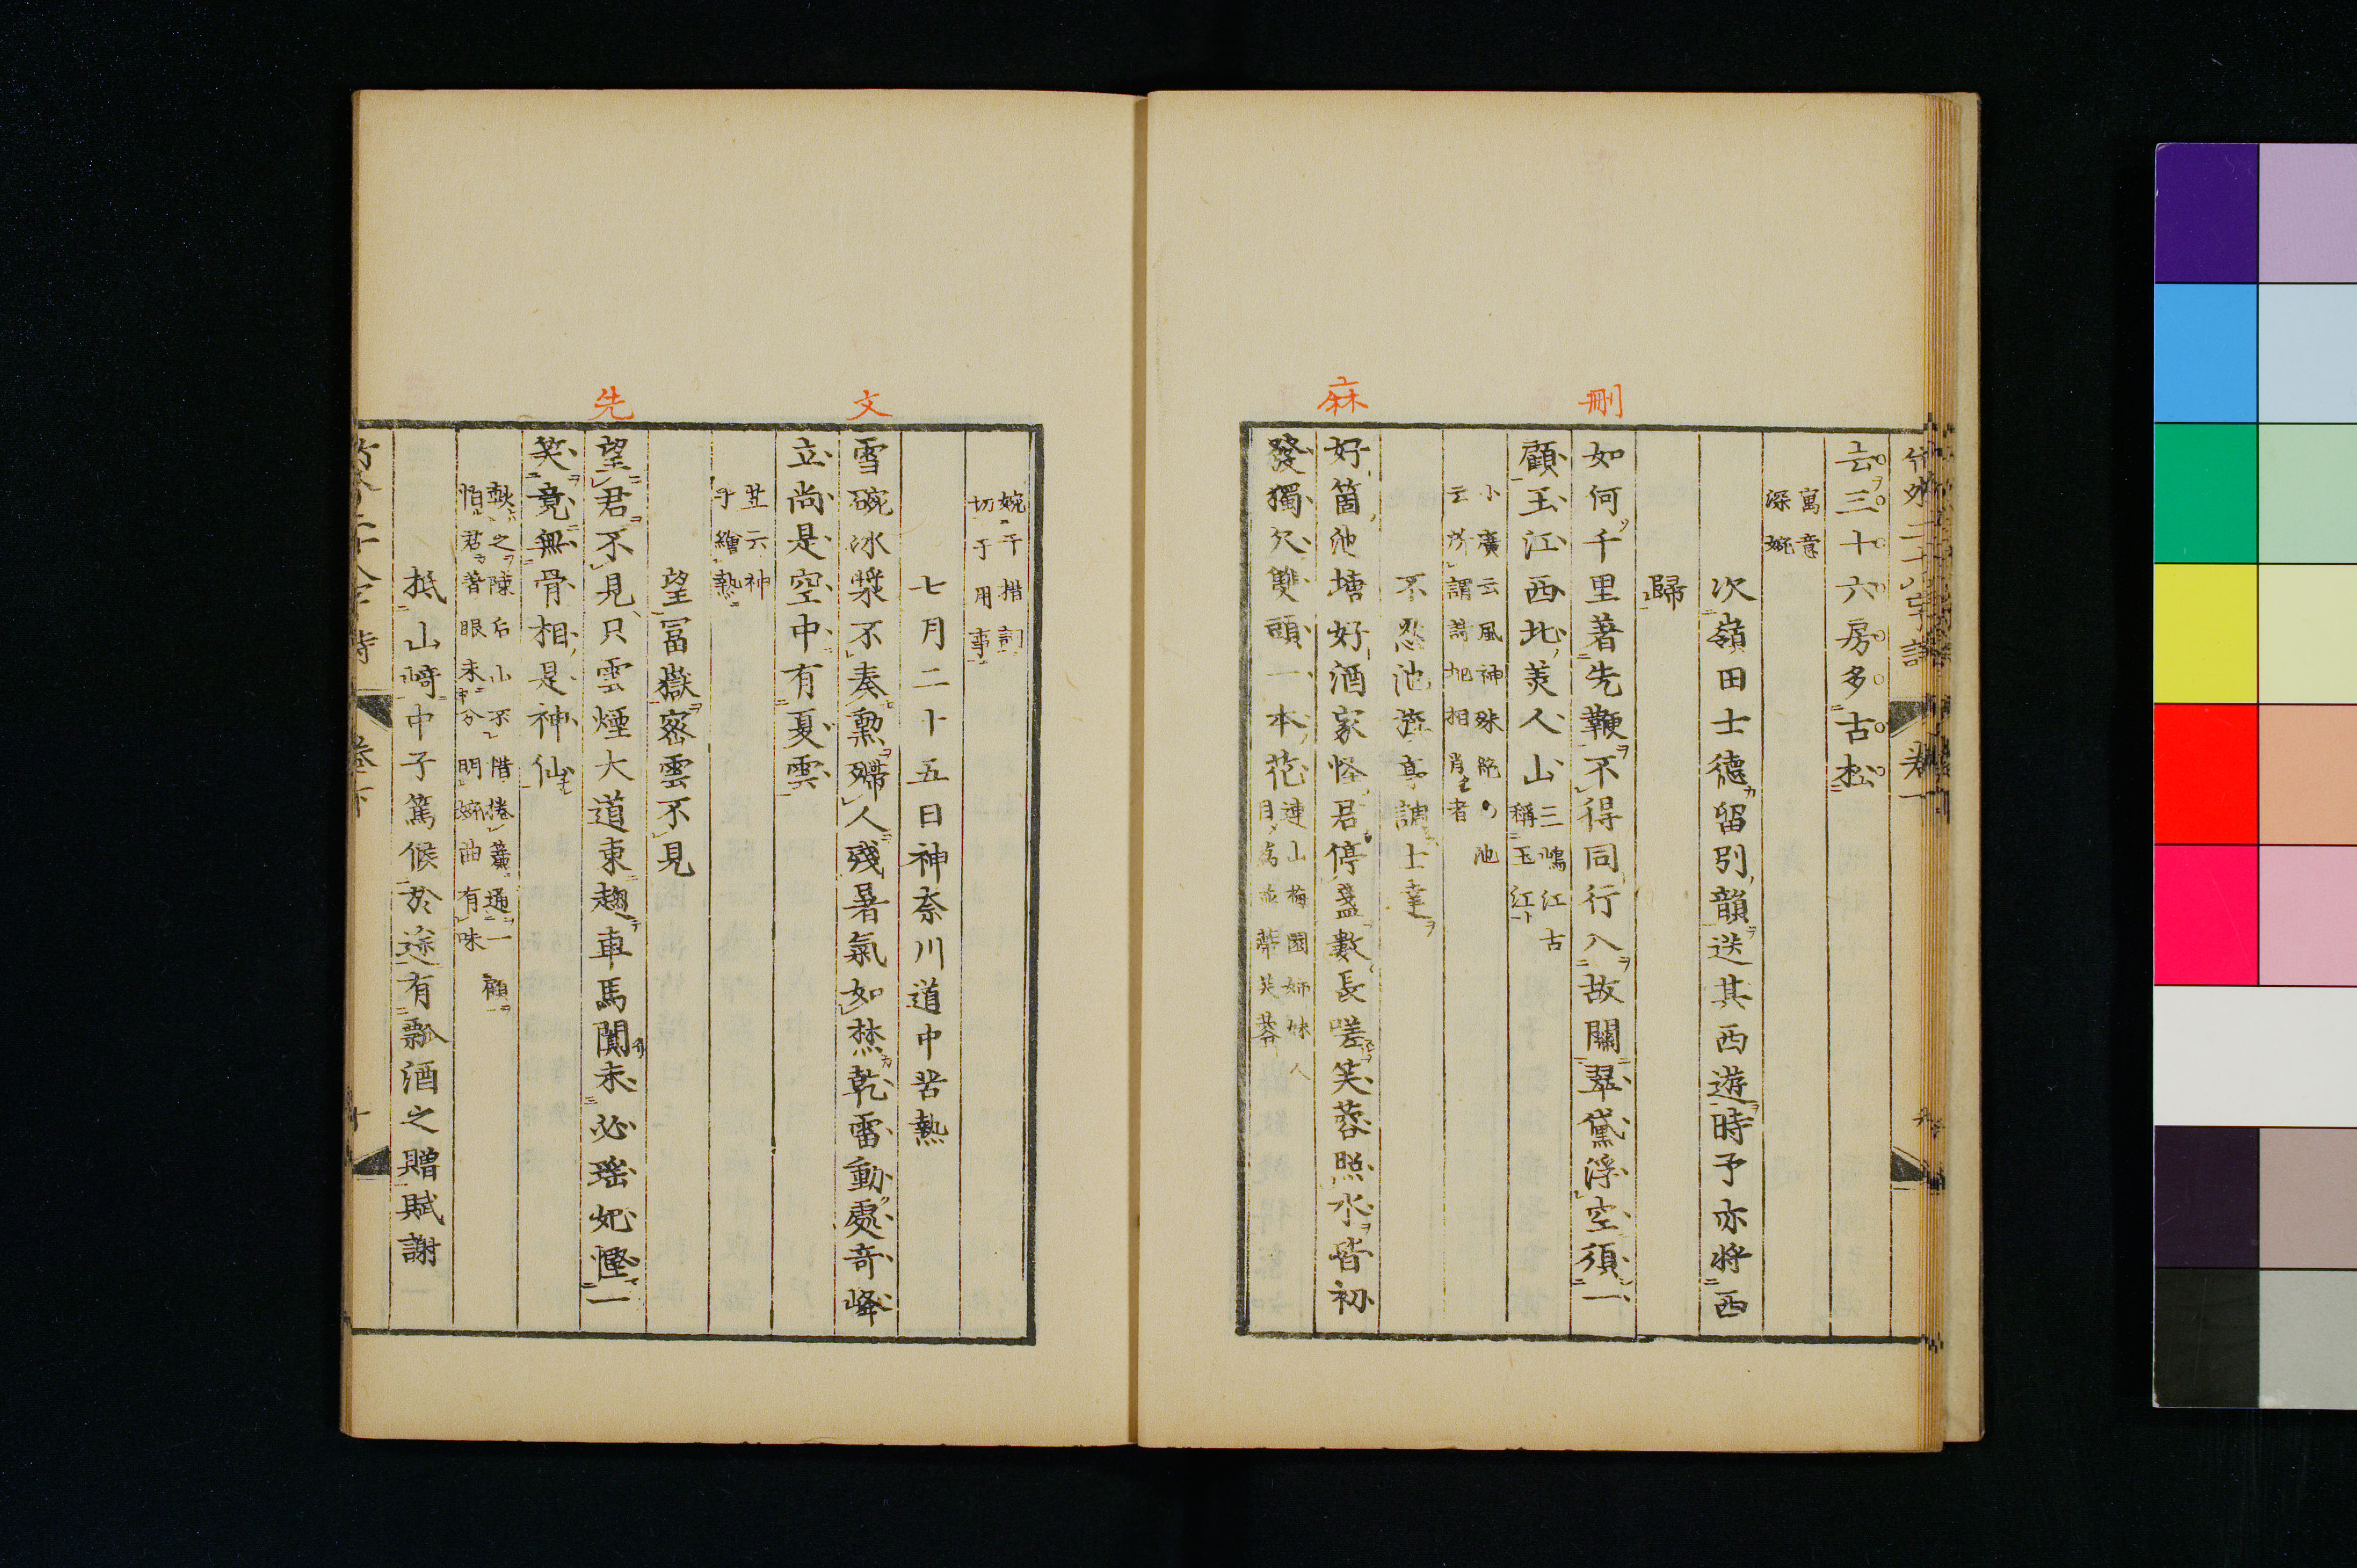 去三十六房多古松
寓意
深婉
次嶺田士德留別韻送其西遊時予亦將西
歸
刪
如何千里著先鞭不得同行入故關翠黛浮空須一
顧玉江西北美人山
三嶋江古
稱玉江
小廣云風神殊絶
不忍池
麻
好箇池塘好酒家怪君停盞數長嗟芙蓉照水皆初
發獨欠雙頭一本花
蓮山梅園姉妹人
目為並蒂芙蓉
婉于措詞
切于用事
七月二十五日神奈川道中苦熱
文
雪碗冰漿不奏勲殢人殘暑氣如焚乾雷動處奇峰
立尚是空中有夏雲
竝云神
于繪熱
望冨嶽密雲不見
先
望君不見只雲煙大道東趨車馬闐未必瑤妃慳一
笑竟無骨相是神仙
怕君著眼未分明婉曲有味
抵山﨑中子篤候於途有瓢酒之贈賦謝
竹外二十八字詩 卷下 十